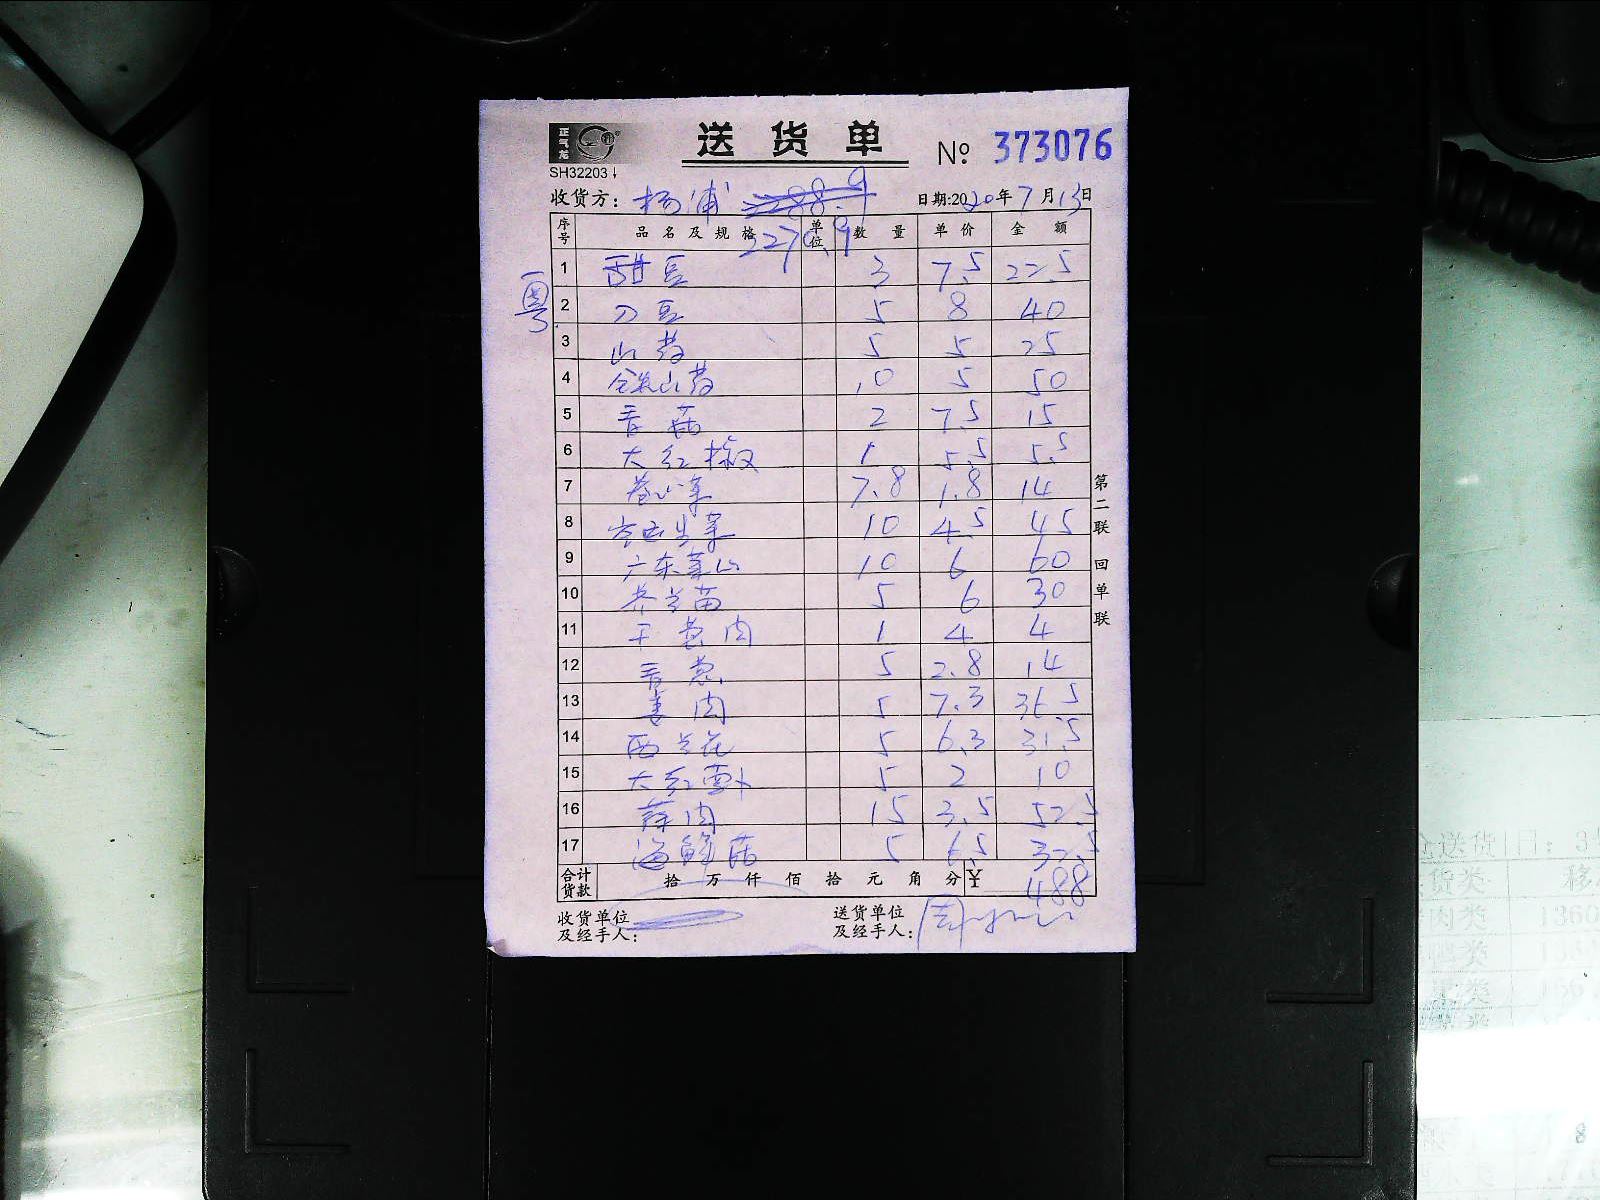 正气龙
送货单 № 373076
SH32203
收货方: 杨浦 3288.9 日期:2020年7月13日
序号 品名及规格 单位 数量 单价 金额
3270.9
粤
1 甜豆 3 7.5 22.5
2 刀豆 5 8 40
3 山药 5 5 25
4 铁山药 10 5 50
5 香菇 2 7.5 15
6 大红椒 1 5.5 5.5
7 卷心菜 7.8 1.8 14
8 生菜 10 4.5 45
9 广东菜心 10 6 60
10 芥兰苗 5 6 30
11 干葱肉 1 4 4
12 香葱 5 2.8 14
13 姜肉 5 7.3 36.5
14 西兰花 5 6.3 31.5
15 大红卜 5 2 10
16 蒜肉 15 3.5 52.5
17 海鲜菇 5 6.5 32.5
合计货款 拾 万 仟 佰 拾 元 角 分 ¥ 488
收货单位及经手人:
送货单位及经手人: 周
第二联 回单联
送货日: 3
货类 移
肉类 1360
鸭类